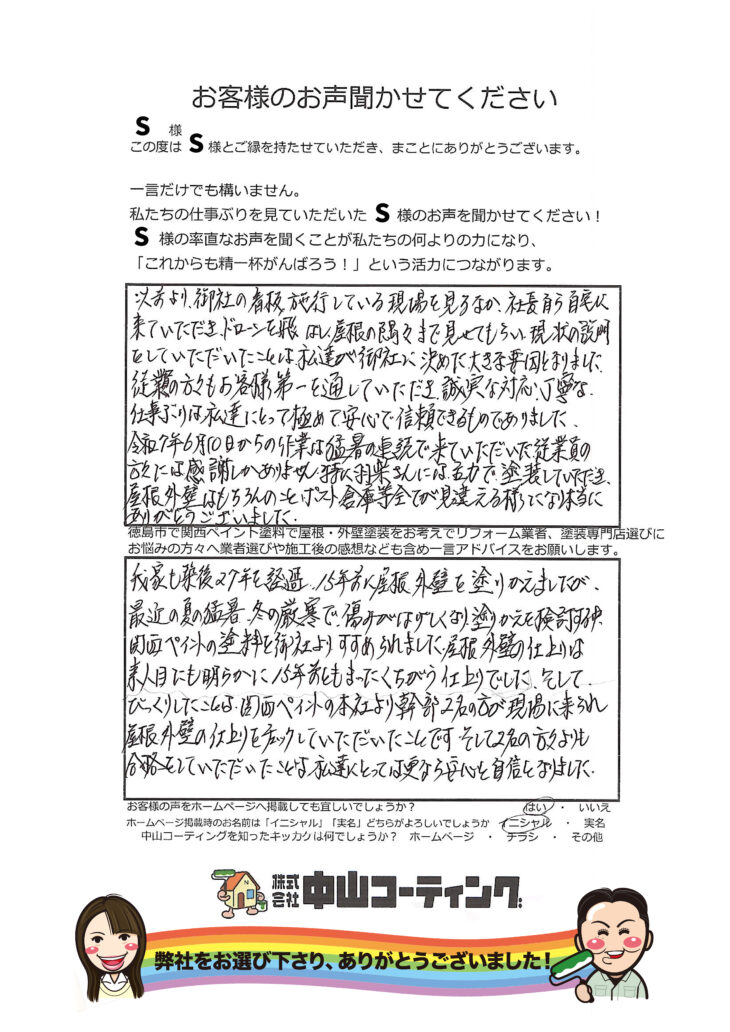 お客様のお声聞かせてください
S 様
この度は S 様とご縁を持たせていただき、まことにありがとうございます。
一言だけでも構いません。
私たちの仕事ぶりを見ていただいた S 様のお声を聞かせてください!
S 様の率直なお声を聞くことが私たちの何よりの力になり、
「これからも精一杯がんばろう!」という活力につながります。
以前より、御社の看板、施行している現場を見るなか、社長自ら自宅に
来ていただき、ドローンを飛ばし、屋根の隅々まで見せてもらい、現状の説明
をしていただいたことは、私達が御社に決めた大きな要因となりました。
従業の方々もお客様第一を通していただき、誠実な対応、丁寧な
仕事ぶりは私達にとって極めて安心で信頼できるものでありました。
令和7年6月10日からの作業は猛暑の連続で来ていただいた従業員の
方々には感謝しかありません。特に さんには 力で塗装していただき、
屋根、外壁はもちろんのこと、ポスト、倉庫等全てが見違える様になり本当に
ありがとうございました。
徳島市で関西ペイント塗料で屋根・外壁塗装をお考えでリフォーム業者、塗装専門店選びに
お悩みの方々へ業者選びや施工後の感想なども含め一言アドバイスをお願いします。
我家も築後27年を経過、15年前に屋根、外壁を塗りかえましたが、
最近の夏の猛暑、冬の厳寒で、傷みがはげしくなり塗りかえを検討する中、
関西ペイントの塗料を御社よりすすめられました。屋根、外壁の仕上りは
素人目にも明らかに15年前ともまったくちがう仕上りでした。そして、
びっくりしたことは、関西ペイントの本社より幹部2名の方が現場に来られ
屋根、外壁の仕上りをチェックしていただいたことです。そして2名の方々よりも
合格をしていただいたことは、私達にとっては更なる安心と自信となりました。
お客様の声をホームページへ掲載しても宜しいでしょうか? はい ・ いいえ
ホームページ掲載時のお名前は「イニシャル」「実名」どちらがよろしいでしょうか イニシャル ・ 実名
中山コーティングを知ったキッカケは何でしょうか? ホームページ ・ チラシ ・ その他
株式会社 中山コーティング
弊社をお選び下さり、ありがとうございました!